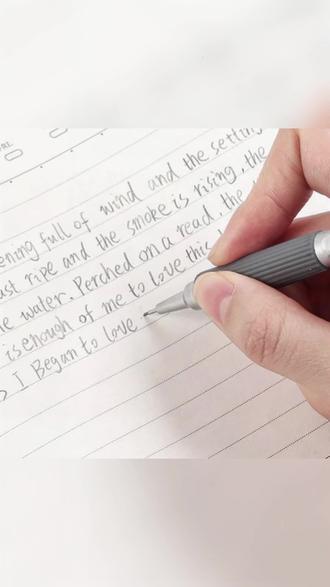 ening full of wind and the setting
ast ripe and the smoke is rising, the
e water. Perched on a read, the
is enough of me to love this
I Began to love